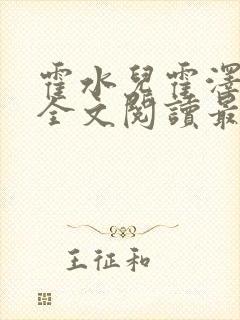 霍水兒霍澤
全文閱讀最
王征和